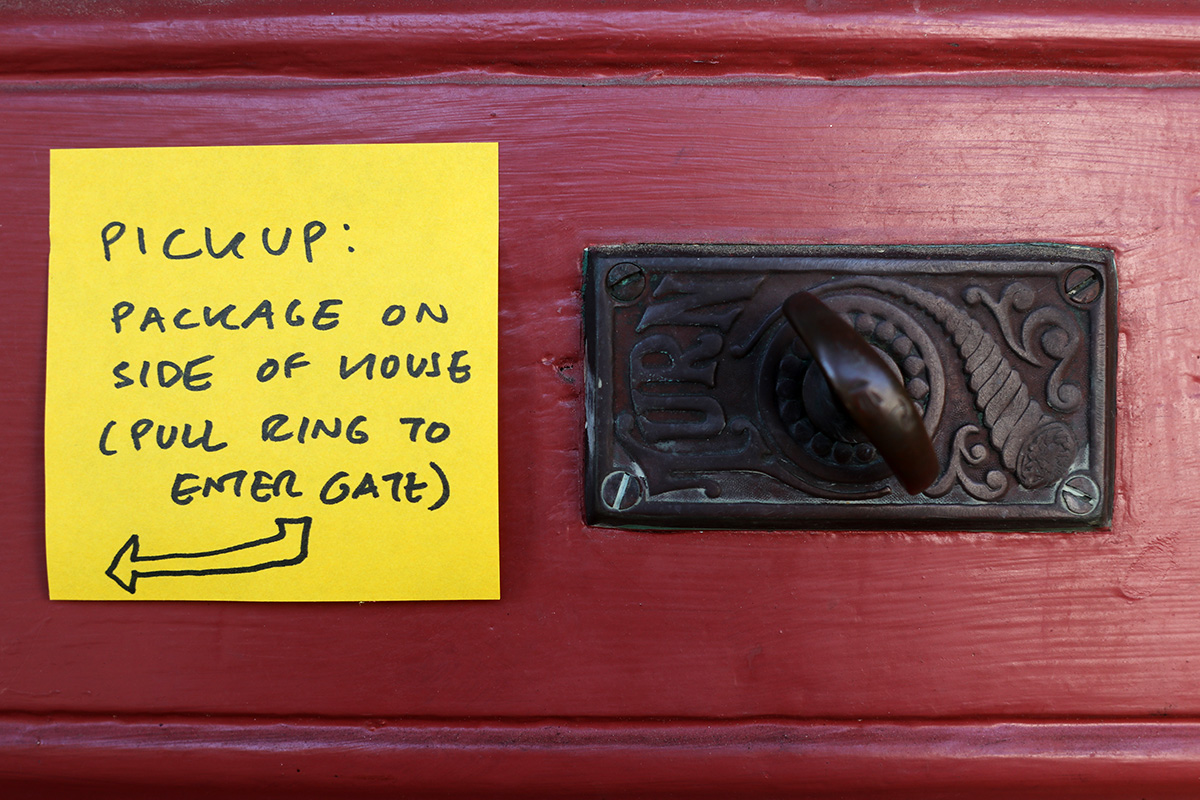 PICKUP:
PACKAGE ON
SIDE OF HOUSE
(PULL RING TO
ENTER GATE)
TURN